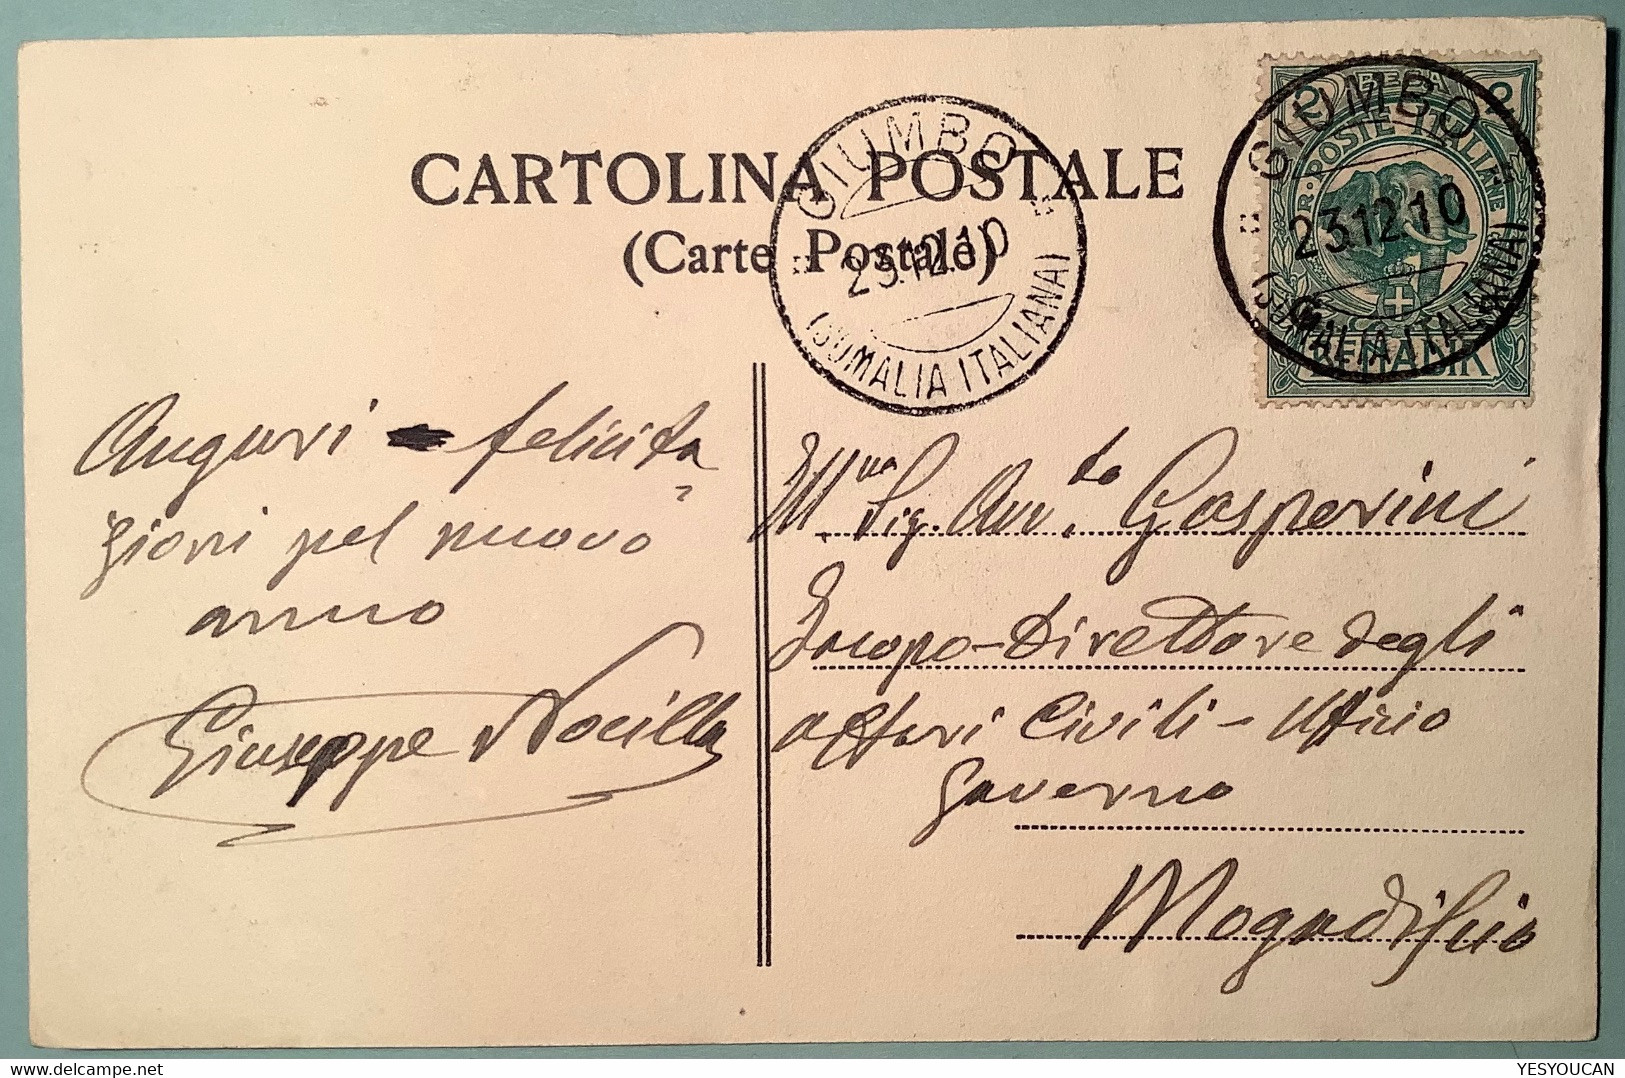 CARTOLINA POSTALE
(Carte Postale)
GIUMBO
23.12.10
(SOMALIA ITALIANA)
2 BESA 2
R. POSTE ITALIANE
BENADIR
GIUMBO
23.12.10
(SOMALIA ITALIANA)
Auguri felicita
zioni pel nuovo
anno
Giuseppe Nocilla
Ill.mo Sig. Avv.to Gasperini
Jacopo - Direttore degli
affari Civili - Ufficio
Governo
Mogadiscio
YESYOUCAN